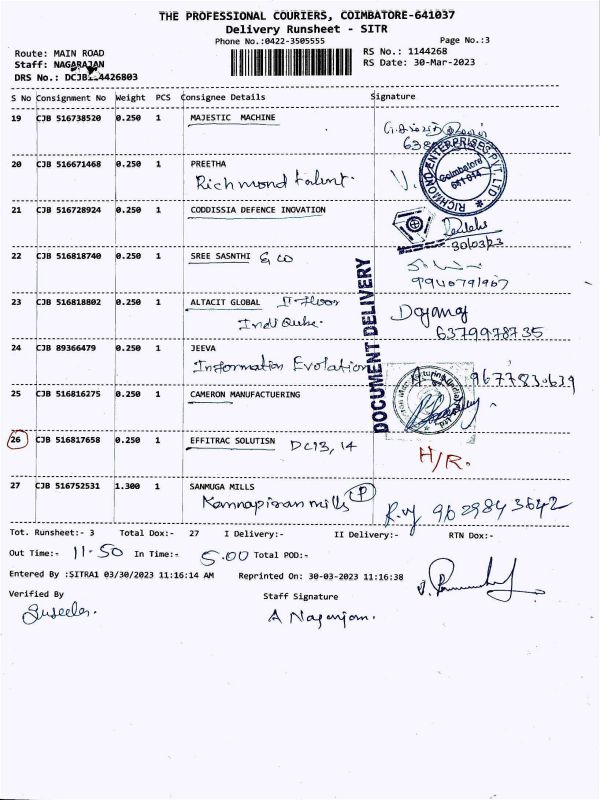 THE PROFESSIONAL COURIERS, COIMBATORE-641037
Delivery Runsheet - SITR
Phone No.:0422-3505555 Page No.:3
Route: MAIN ROAD RS No.: 1144268
Staff: NAGARAJAN RS Date: 30-Mar-2023
DRS No.: DCJB 4426803
S No Consignment No Weight PCS Consignee Details Signature
19 CJB 516738520 0.250 1 MAJESTIC MACHINE
20 CJB 516671468 0.250 1 PREETHA
Richmond talent.
RICHMOND ENTERPRISES PVT. LTD
Coimbatore
641 014
21 CJB 516728924 0.250 1 CODDISSIA DEFENCE INOVATION
30/03/23
22 CJB 516818740 0.250 1 SREE SASNTHI & CO
9940791967
DOCUMENT DELIVERY
23 CJB 516818802 0.250 1 ALTACIT GLOBAL II-Floor
Indi Qube.
6379978735
24 CJB 89366479 0.250 1 JEEVA
Information Evolution
9677830639
25 CJB 516816275 0.250 1 CAMERON MANUFACTUERING
26 CJB 516817658 0.250 1 EFFITRAC SOLUTISN DC13, 14
H/R.
27 CJB 516752531 1.300 1 SANMUGA MILLS
Kannapiran mills P
9629843642
Tot. Runsheet:- 3 Total Dox:- 27 I Delivery:- II Delivery:- RTN Dox:-
Out Time:- 11-50 In Time:- 5.00 Total POD:-
Entered By :SITRA1 03/30/2023 11:16:14 AM Reprinted On: 30-03-2023 11:16:38
Verified By Staff Signature
Suseela. A Nagarajan.